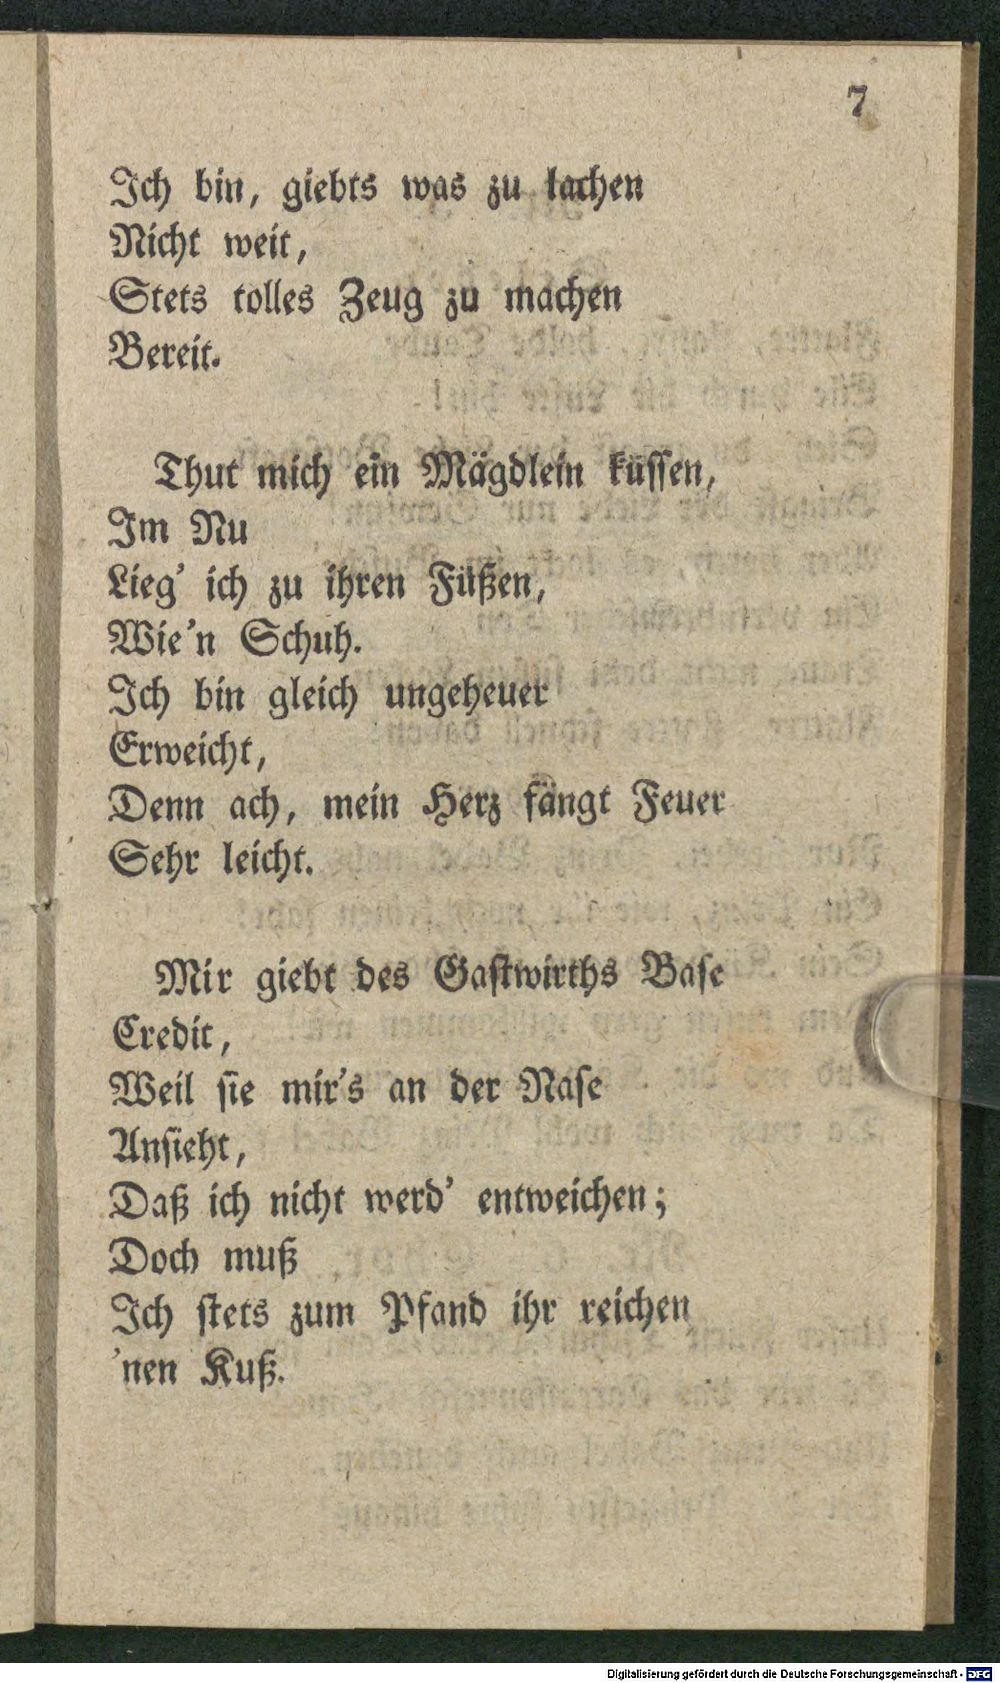 7
Ich bin, giebts was zu lachen
Nicht weit,
Stets tolles Zeug zu machen
Bereit.
Thut mich ein Mägdlein küssen,
Im Nu
Lieg' ich zu ihren Füßen,
Wie'n Schuh.
Ich bin gleich ungeheuer
Erweicht,
Denn ach, mein Herz fängt Feuer
Sehr leicht.
Mir giebt des Gastwirths Base
Credit,
Weil sie mir's an der Nase
Ansieht,
Daß ich nicht werd' entweichen;
Doch muß
Ich stets zum Pfand ihr reichen
'nen Kuß.
Digitalisierung gefördert durch die Deutsche Forschungsgemeinschaft - DFG